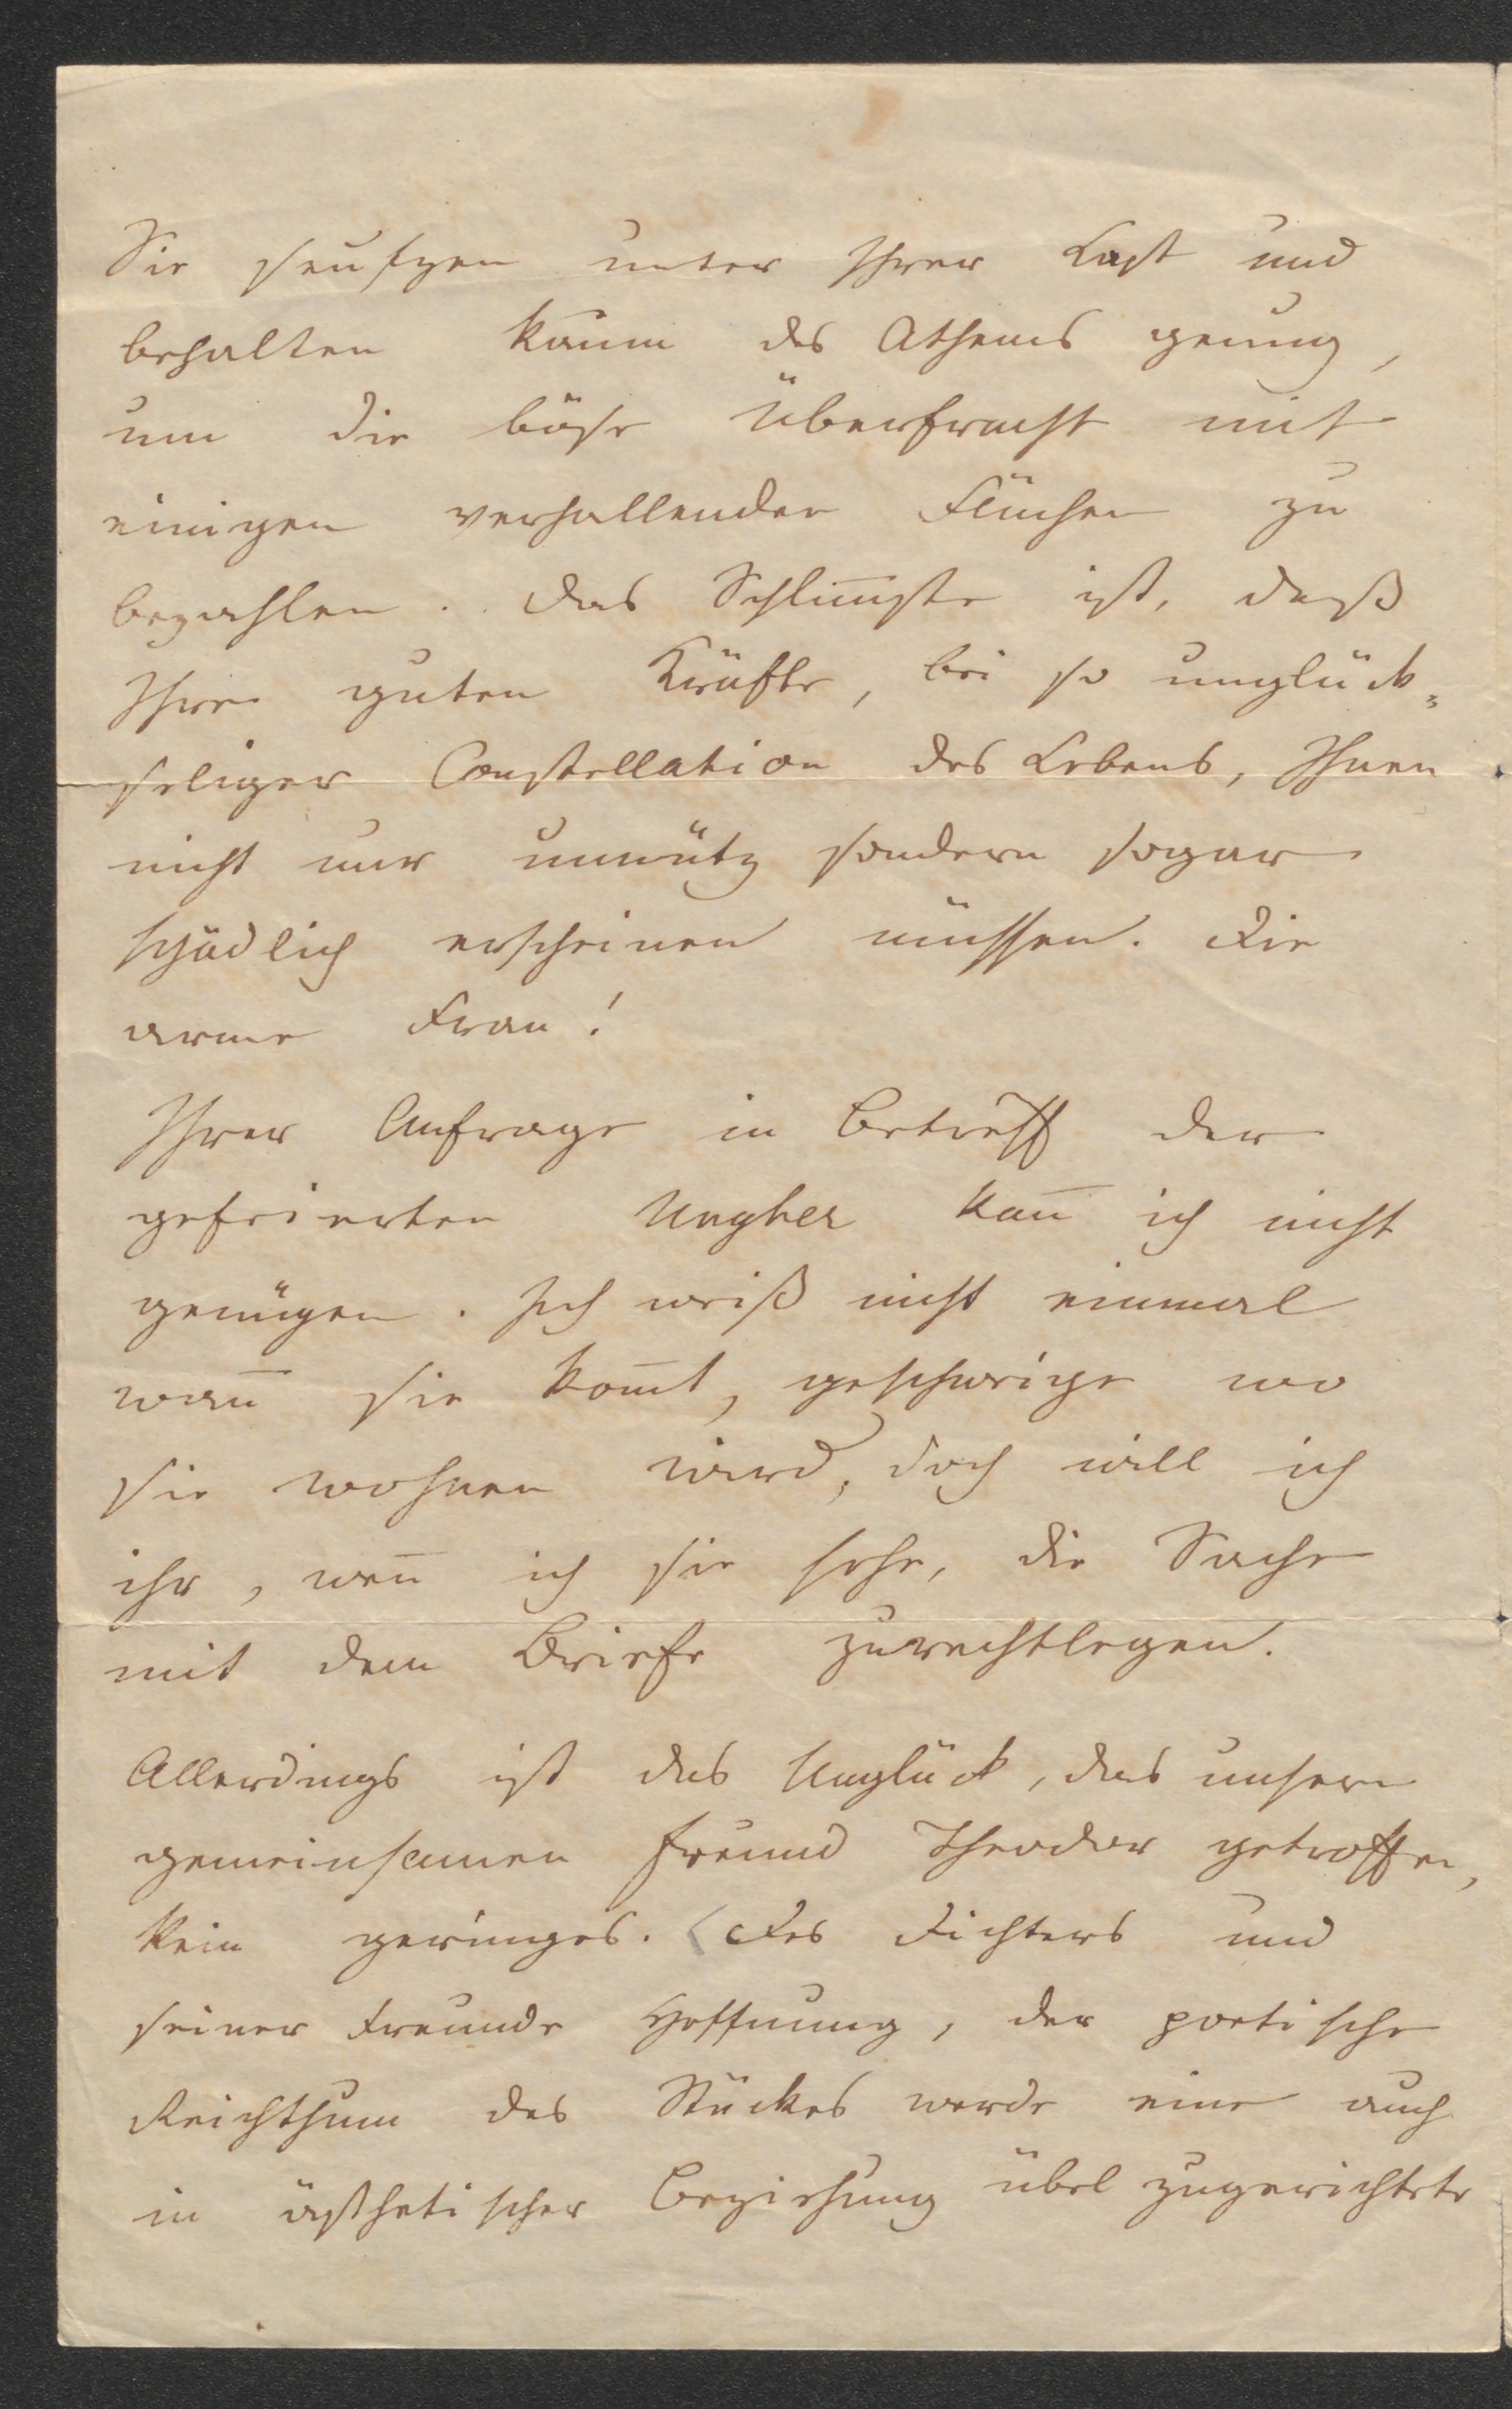 Sie seufzen unter Ihrer Last und
behalten kaum des Athems genug,
um die böse Überfracht mit
einigen verhallenden Flüchen zu
bezahlen. Das Schlim̅ste ist, daß
Ihre guten Kräfte, bei so unglück=
seliger Constellation des Lebens, Ihnen
nicht nur unnütz sondern sogar
schädlich erscheinen müssen. Die
arme Frau!
Ihrer Anfrage in Betreff der
gefeierten Ungher kan̅ ich nicht
genügen. Ich weiß nicht einmal
wan̅ sie kom̅t, geschweige wo
sie wohnen wird, doch will ich
ihr, wen̅ ich sie sehe, die Sache
mit dem Briefe zurechtlegen.
Allerdings ist das Unglück, das unsern
gemeinsamen Freund Theodor getroffen,
kein geringes. Des Dichters und
seiner Freunde Hoffnung, der poetische
Reichthum des Stückes werde eine auch
in ästhetischer Beziehung übel zugerichtete